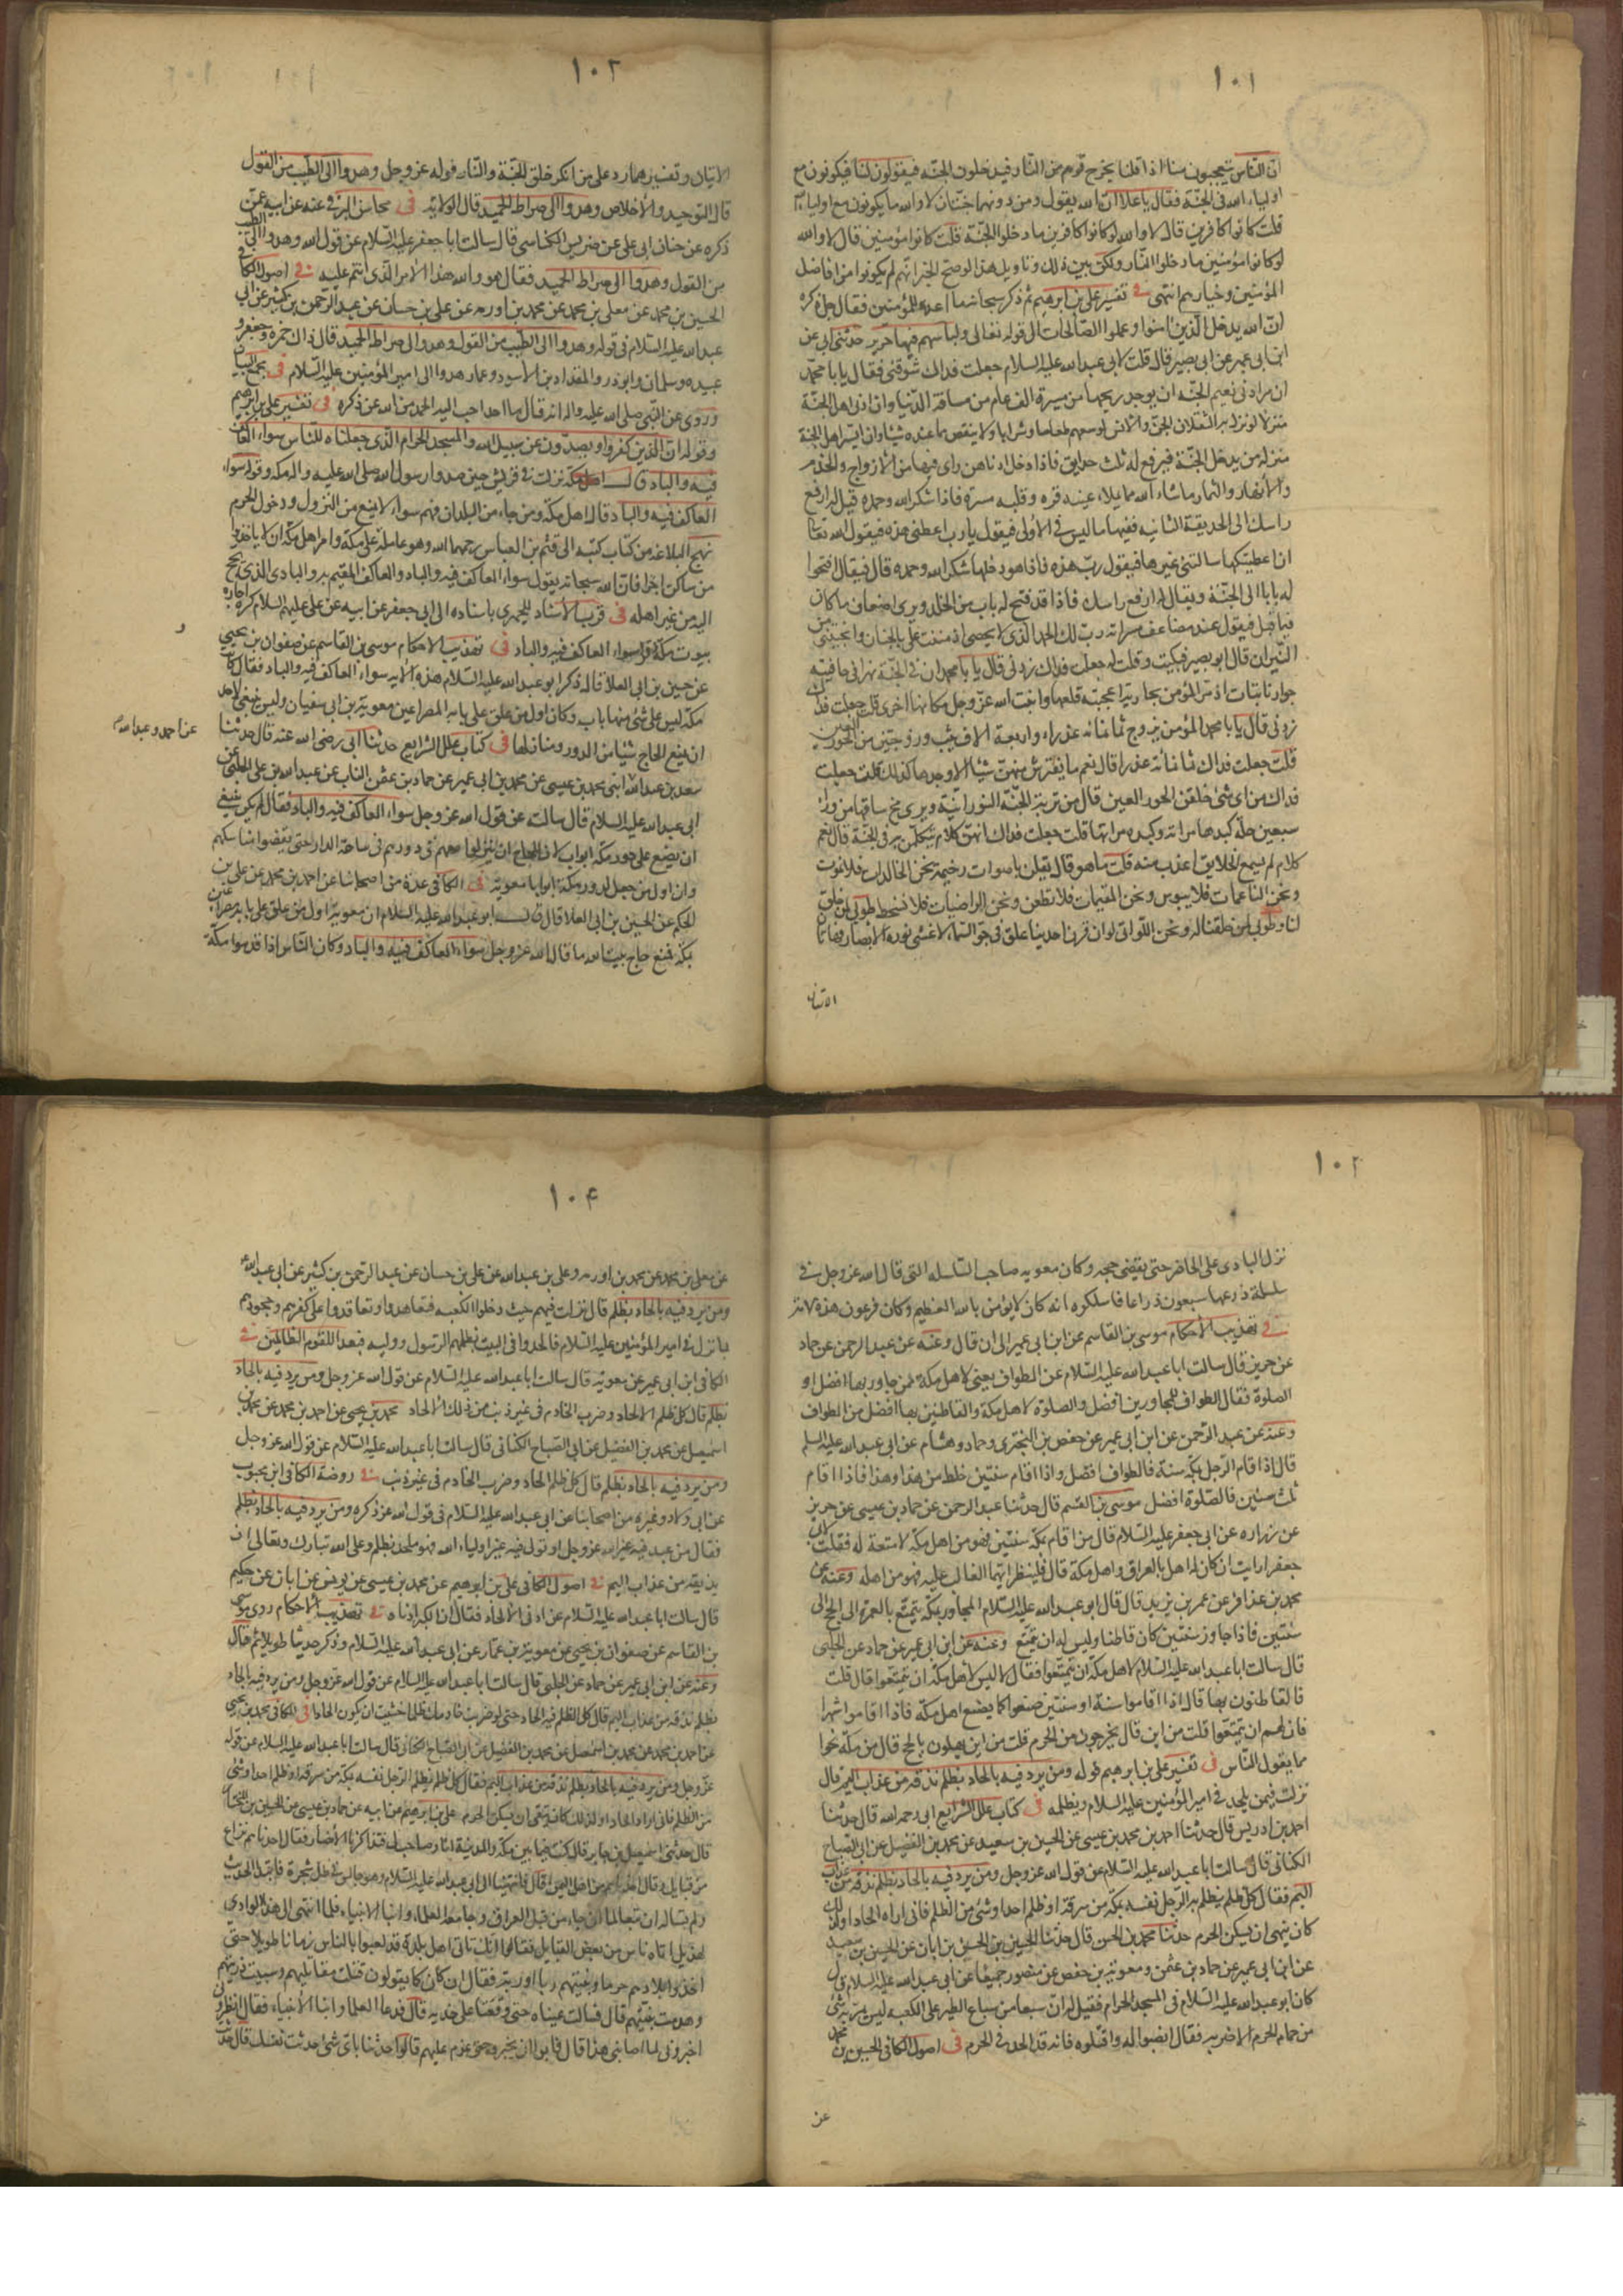 ١٠١
ان الناس يتعجبون منا اذا قلنا يخرج قوم من النار فيدخلون الجنة فيقولون لنا فيكونون مع
اولياء الله فى الجنة فقال يا علا ان الله يقول ومن دونهما جنتان لا والله ما يكونون مع اولياء الله
قلت كانوا كافرين قال لا والله لو كانوا كافرين ما دخلوا الجنة قلت كانوا مؤمنين قال لا والله
لو كانوا مؤمنين ما دخلوا النار ولكن بين ذلك وتاويل هذا لو صح الخبر انهم لم يكونوا من افاضل
المؤمنين وخيارهم انتهى فى تفسير على بن ابرهيم ثم ذكر سبحانه ما اعده للمؤمنين فقال جل ذكره
ان الله يدخل الذين امنوا وعملوا الصالحات الى قوله تعالى ولباسهم فيها حرير حدثنى ابى عن
ابن ابى عمير عن ابى بصير قال قلت لابى عبد الله عليه السلام جعلت فداك شوقنى فقال يا با محمد
ان من ادنى نعيم الجنة ان يوجد ريحها من مسيرة الف عام من مسافة الدنيا وان ادنى اهل الجنة
منزلا لو نزل به الثقلان الجن والانس لوسعهم طعاما وشرابا ولا ينقص مما عنده شيئا وان ايسر اهل الجنة
منزله من يدخل الجنة فيرفع له ثلث حدايق فاذا دخل ادناهن راى فيها من الازواج والخدم
والانهار والثمار ما شاء الله مما يملاء عينه قره وقلبه مسرة فاذا شكر الله وحمده قيل له ارفع
راسك الى الحديقة الثانيه ففيها ما ليس فى الاولى فيقول يا رب اعطنى هذه فيقول الله تعالى
ان اعطيتكها سالتنى غيرها فيقول رب هذه هذه فاذا هو دخلها شكر الله وحمده قال فيقال افتحوا
له بابا الى الجنة ويقال له ارفع راسك فاذا قد فتح له باب من الخلد ويرى اضعاف ما كان
فيما قبل فيقول عند مضاعف مسراته رب لك الحمد الذى لا يحصى اذ مننت على بالجنان وانجيتنى من
النيران قال ابو بصير فبكيت وقلت له جعلت فداك زدنى قال يا با محمد ان فى الجنة نهرا فى حافتيه
جوار نابتات اذا مر المؤمن بجارية اعجبته قلعها وانبت الله عز وجل مكانها اخرى قلت جعلت فداك
زدنى قال يا با محمد المؤمن يزوج ثمانمائه عذراء واربعة الاف ثيب وزوجتين من الحور العين
قلت جعلت فداك ثمانمائة عذراء قال نعم ما يفترش منهن شيئا الا وجدها كذلك قلت جعلت
فداك من اى شئ خلقن الحور العين قال من تربة الجنة النورانية ويرى مخ ساقها من وراء
سبعين حلة كبدها مراته وكبده مراتها قلت جعلت فداك الهن كلام يتكلمن به فى الجنة قال نعم
كلام لم يسمع الخلايق اعذب منه قلت ما هو قال يقلن باصوات رخيمة نحن الخالدات فلا نموت
ونحن الناعمات فلا نبوس ونحن المقيمات فلا نظعن ونحن الراضيات فلا نسخط طوبى لمن خلق
لنا وطوبى لمن خلقنا له ونحن اللواتى لو ان قرن احدينا علق فى جو السماء لاغشى نوره الابصار فهاتان
الايتان
١٠٢
الايتان وتفسيرهما رد على من انكر خلق الجنة والنار قوله عز وجل وهدوا الى الطيب من القول
قال التوحيد والاخلاص وهدوا الى صراط الحميد قال الولاية فى محاسن البرقى عنه عن ابيه عمن
ذكره عن حنان ابى على عن ضريس الكناسى قال سالت ابا جعفر عليه السلام عن قول الله وهدوا الى الطيب
من القول وهدوا الى صراط الحميد فقال هو والله هذا الامر الذى انتم عليه فى اصول الكافى
الحسين بن محمد عن معلى بن محمد عن محمد بن اورمه عن على بن حسان عن عبد الرحمن بن كثير عن ابى
عبد الله عليه السلام فى قوله وهدوا الى الطيب من القول وهدوا الى صراط الحميد قال ذاك حمزه وجعفر و
عبيده وسلمان وابو ذر والمقداد بن الاسود وعمار هدوا الى امير المؤمنين عليه السلام فى مجمع البيان
وروى عن النبى صلى الله عليه واله انه قال ما احد احب اليه الحمد من الله عز ذكره فى تفسير على بن ابرهيم
وقوله ان الذين كفروا ويصدون عن سبيل الله والمسجد الحرام الذى جعلناه للناس سواء العاكف
فيه والباد قال نزلت فى قريش حين صدوا رسول الله صلى الله عليه واله مكه وقوله سواء
العاكف فيه والباد قال اهل مكة ومن جاء من البلدان فهم سواء لا يمنع من النزول ودخول الحرم
نهج البلاغه من كتاب كتبه الى قثم بن العباس رحمهما الله وهو عامله على مكة وامر اهل مكة ان لا ياخذوا
من ساكن اجرا فان الله سبحانه يقول سواء العاكف فيه والباد والعاكف المقيم به والبادى الذى يحج
اليه من غير اهله فى قرب الاسناد للحميرى باسناده الى ابى جعفر عن ابيه عن على عليهم السلام كره اجاره
بيوت مكة وقرا سواء العاكف فيه والباد فى تهذيب الاحكام موسى بن القاسم عن صفوان بن يحيى
عن حسين بن ابى العلا قال ذكر ابو عبد الله عليه السلام هذه الايه سواء العاكف فيه والباد فقال كانت
مكة ليس على شئ منها باب وكان اول من علق على بابه المصراعين معوية بن ابى سفيان وليس ينبغى لاحد
ان يمنع الحاج شيئا من الدور ومنازلها فى كتاب علل الشرايع حدثنا ابى رضى الله عنه قال حدثنا
عن احمد وعبد الله
سعد بن عبد الله ابنى محمد بن عيسى عن محمد بن ابى عمير عن حماد بن عثمن الناب عن عبد الله بن على الحلبى عن
ابى عبد الله عليه السلام قال سالت عن قول الله عز وجل سواء العاكف فيه والباد فقال لم يكن ينبغى
ان يضع على دور مكة ابواب لان للحاج ان ينزلوا معهم فى دورهم فى ساحة الدار حتى يقضوا مناسكهم
وان اول من جعل لدور مكة ابوابا معوية فى الكافى عدة من اصحابنا عن احمد بن محمد عن على بن
الحكم عن الحسين بن ابى العلا قال قال ابو عبد الله عليه السلام ان معوية اول من علق على بابه مصراعين
بمكة فمنع حاج بيت الله ما قال الله عز وجل سواء العاكف فيه والباد وكان الناس اذا قدموا مكة
١٠٢
نزل البادى على الحاضر حتى يقضى حجه وكان معويه صاحب السلسله التى قال الله عز وجل فى
سلسلة ذرعها سبعون ذراعا فاسلكوه انه كان لا يؤمن بالله العظيم وكان فرعون هذه الامة
فى تهذيب الاحكام موسى بن القاسم عن ابن ابى عمير الى ان قال وعنه عن عبد الرحمن عن حماد
عن حريز قال سالت ابا عبد الله عليه السلام عن الطواف يعنى لاهل مكة لمن جاور بها افضل او
الصلوة فقال الطواف للمجاورين افضل والصلوة لاهل مكة والقاطنين بها افضل من الطواف
وعنه عن عبد الرحمن عن ابن ابى عمير عن حفص بن البخترى وحماد وهشام عن ابى عبد الله عليه السلم
قال اذا قام الرجل بمكة سنة فالطواف افضل واذا اقام سنتين خلط من هذا وهذا فاذا اقام
ثلث سنين فالصلوة افضل موسى بن القسم قال حدثنا عبد الرحمن عن حماد بن عيسى عن حريز
عن زراره عن ابى جعفر عليه السلام قال من اقام بمكة سنتين فهو من اهل مكة لا متعة له فقلت لابى
جعفر ارايت ان كان له اهل بالعراق واهل بمكة قال فلينظر ايهما الغالب عليه فهو من اهله وعنه عن
محمد بن عذافر عن عمر بن يزيد قال قال ابو عبد الله عليه السلام المجاور بمكة يتمتع بالعمرة الى الحج الى
سنتين فاذا جاوز سنتين كان قاطنا وليس له ان يتمتع وعنه عن ابن ابى عمير عن حماد عن الحلبى
قال سالت ابا عبد الله عليه السلام لاهل مكة ان يتمتعوا فقال لا ليس لاهل مكة ان يتمتعوا قال قلت
فالقاطنون بها قال اذا اقاموا سنة او سنتين صنعوا كما يصنع اهل مكة فاذا اقاموا شهرا
فان لهم ان يتمتعوا قلت من اين قال يخرجون من الحرم قلت من اين يهلون بالحج قال من مكة نحوا
مما يقول الناس فى تفسير على بن ابرهيم قوله ومن يرد فيه بالحاد بظلم نذقه من عذاب اليم قال
نزلت فيمن يلحد فى امير المؤمنين عليه السلام ويظلمه فى كتاب علل الشرايع ابى رحمه الله قال حدثنا
احمد بن ادريس قال حدثنا احمد بن محمد بن عيسى عن الحسين بن سعيد عن محمد بن الفضيل عن ابى الصباح
الكنانى قال سالت ابا عبد الله عليه السلام عن قول الله عز وجل ومن يرد فيه بالحاد بظلم نذقه من عذاب
اليم فقال كل ظلم يظلم به الرجل نفسه بمكة من سرقة او ظلم احد او شئ من الظلم فانى اراه الحادا ولذلك
كان ينهى ان يسكن الحرم حدثنا محمد بن الحسن قال حدثنا الحسين بن الحسين بن ابان عن الحسين بن سعيد
عن ابن ابى عمير عن حماد بن عثمن ومعوية بن حفص عن منصور جميعا عن ابى عبد الله عليه السلام قال
كان ابو عبد الله عليه السلام فى المسجد الحرام فقيل له ان سبعا من سباع الطير على الكعبه ليس يمر به شئ
من حمام الحرم الا ضربه فقال انصبوا له واقتلوه فانه قد الحد فى الحرم فى اصول الكافى الحسين بن محمد
عن
١٠٤
عن معلى بن محمد عن محمد بن اورمه وعلى بن عبد الله عن على بن حسان عن عبد الرحمن بن كثير عن ابى عبد الله
ومن يرد فيه بالحاد بظلم قال نزلت فيهم حيث دخلوا الكعبه فتعاهدوا وتعاقدوا على كفرهم وجحودهم
بما نزل فى امير المؤمنين عليه السلام فالحدوا فى البيت بظلمهم الرسول ووليه فبعدا للقوم الظالمين فى
الكافى ابن ابى عمير عن معوية قال سالت ابا عبد الله عليه السلام عن قول الله عز وجل ومن يرد فيه بالحاد
بظلم قال كل ظلم الحاد وضرب الخادم فى غير ذنب من ذلك الالحاد محمد بن يحيى عن احمد بن محمد عن محمد بن
اسمعيل عن محمد بن الفضيل عن ابى الصباح الكنانى قال سالت ابا عبد الله عليه السلام عن قول الله عز وجل
ومن يرد فيه بالحاد بظلم قال كل ظلم الحاد وضرب الخادم فى غير ذنب فى روضة الكافى ابن محبوب
عن ابى ولاد وغيره من اصحابنا عن ابى عبد الله عليه السلام فى قول الله عز ذكره ومن يرد فيه بالحاد بظلم
فقال من عبد فيه غير الله عز وجل او تولى فيه غير اولياء الله فهو ملحد بظلم وعلى الله تبارك وتعالى ان
يذيقه من عذاب اليم فى اصول الكافى على بن ابرهيم عن محمد بن عيسى عن يونس عن ابان عن حكيم
قال سالت ابا عبد الله عليه السلام عن ادنى الالحاد فقال ان الكبر ادناه فى تهذيب الاحكام روى موسى
بن القاسم عن صفوان بن يحيى عن معوية بن عمار عن ابى عبد الله عليه السلام وذكر حديثا طويلا ثم قال
وعنه عن ابن ابى عمير عن حماد عن الحلبى قال سالت ابا عبد الله عليه السلام عن قول الله عز وجل ومن يرد فيه بالحاد
بظلم نذقه من عذاب اليم قال كل الظلم فيه الحاد حتى لو ضربت خادمك ظلما خشيت ان يكون الحادا فى الكافى محمد بن يحيى
عن احمد بن محمد عن محمد بن اسمعيل عن محمد بن الفضيل عن ابى الصباح الكنانى قال سالت ابا عبد الله عليه السلام عن قوله
عز وجل ومن يرد فيه بالحاد بظلم نذقه من عذاب اليم فقال كل ظلم يظلم الرجل نفسه بمكة من سرقة او ظلم احد او شئ
من الظلم فانى اراه الحادا ولذلك كان يتقى ان يسكن الحرم على بن ابرهيم عن ابيه عن حماد بن عيسى عن الحسين بن المختار
قال حدثنى اسمعيل بن جابر قال كنت فيما بين مكة والمدينة انا وصاحب لى فتذاكرنا الانصار فقال احدنا هم نزاع
من قبايل وقال احدنا هم من اهل اليمن قال فانتهينا الى ابى عبد الله عليه السلام وهو جالس فى ظل شجرة فابتدا الحديث
ولم نساله ان تبعا لما ان جاء من قبل العراق وجاء معه العلماء وابناء الانبياء فلما انتهى الى هذا الوادى
لهذيل اتاه ناس من بعض القبايل فقالوا انك تاتى اهل بلدة قد لعبوا بالناس زمانا طويلا حتى
اتخذوا بلادهم حرما وبنيتهم ربا او ربة فقال ان كان كما يقولون قتلت مقاتليهم وسبيت ذريتهم
وهدمت بنيتهم قال فسالت عيناه حتى وقعتا على خديه قال فدعا العلماء وابناء الانبياء فقال انظرونى
اخبرونى لما اصابنى هذا قال فابوا ان يخبروه حتى عزم عليهم قالوا حدثنا باى شئ حدثت نفسك قال حدثت